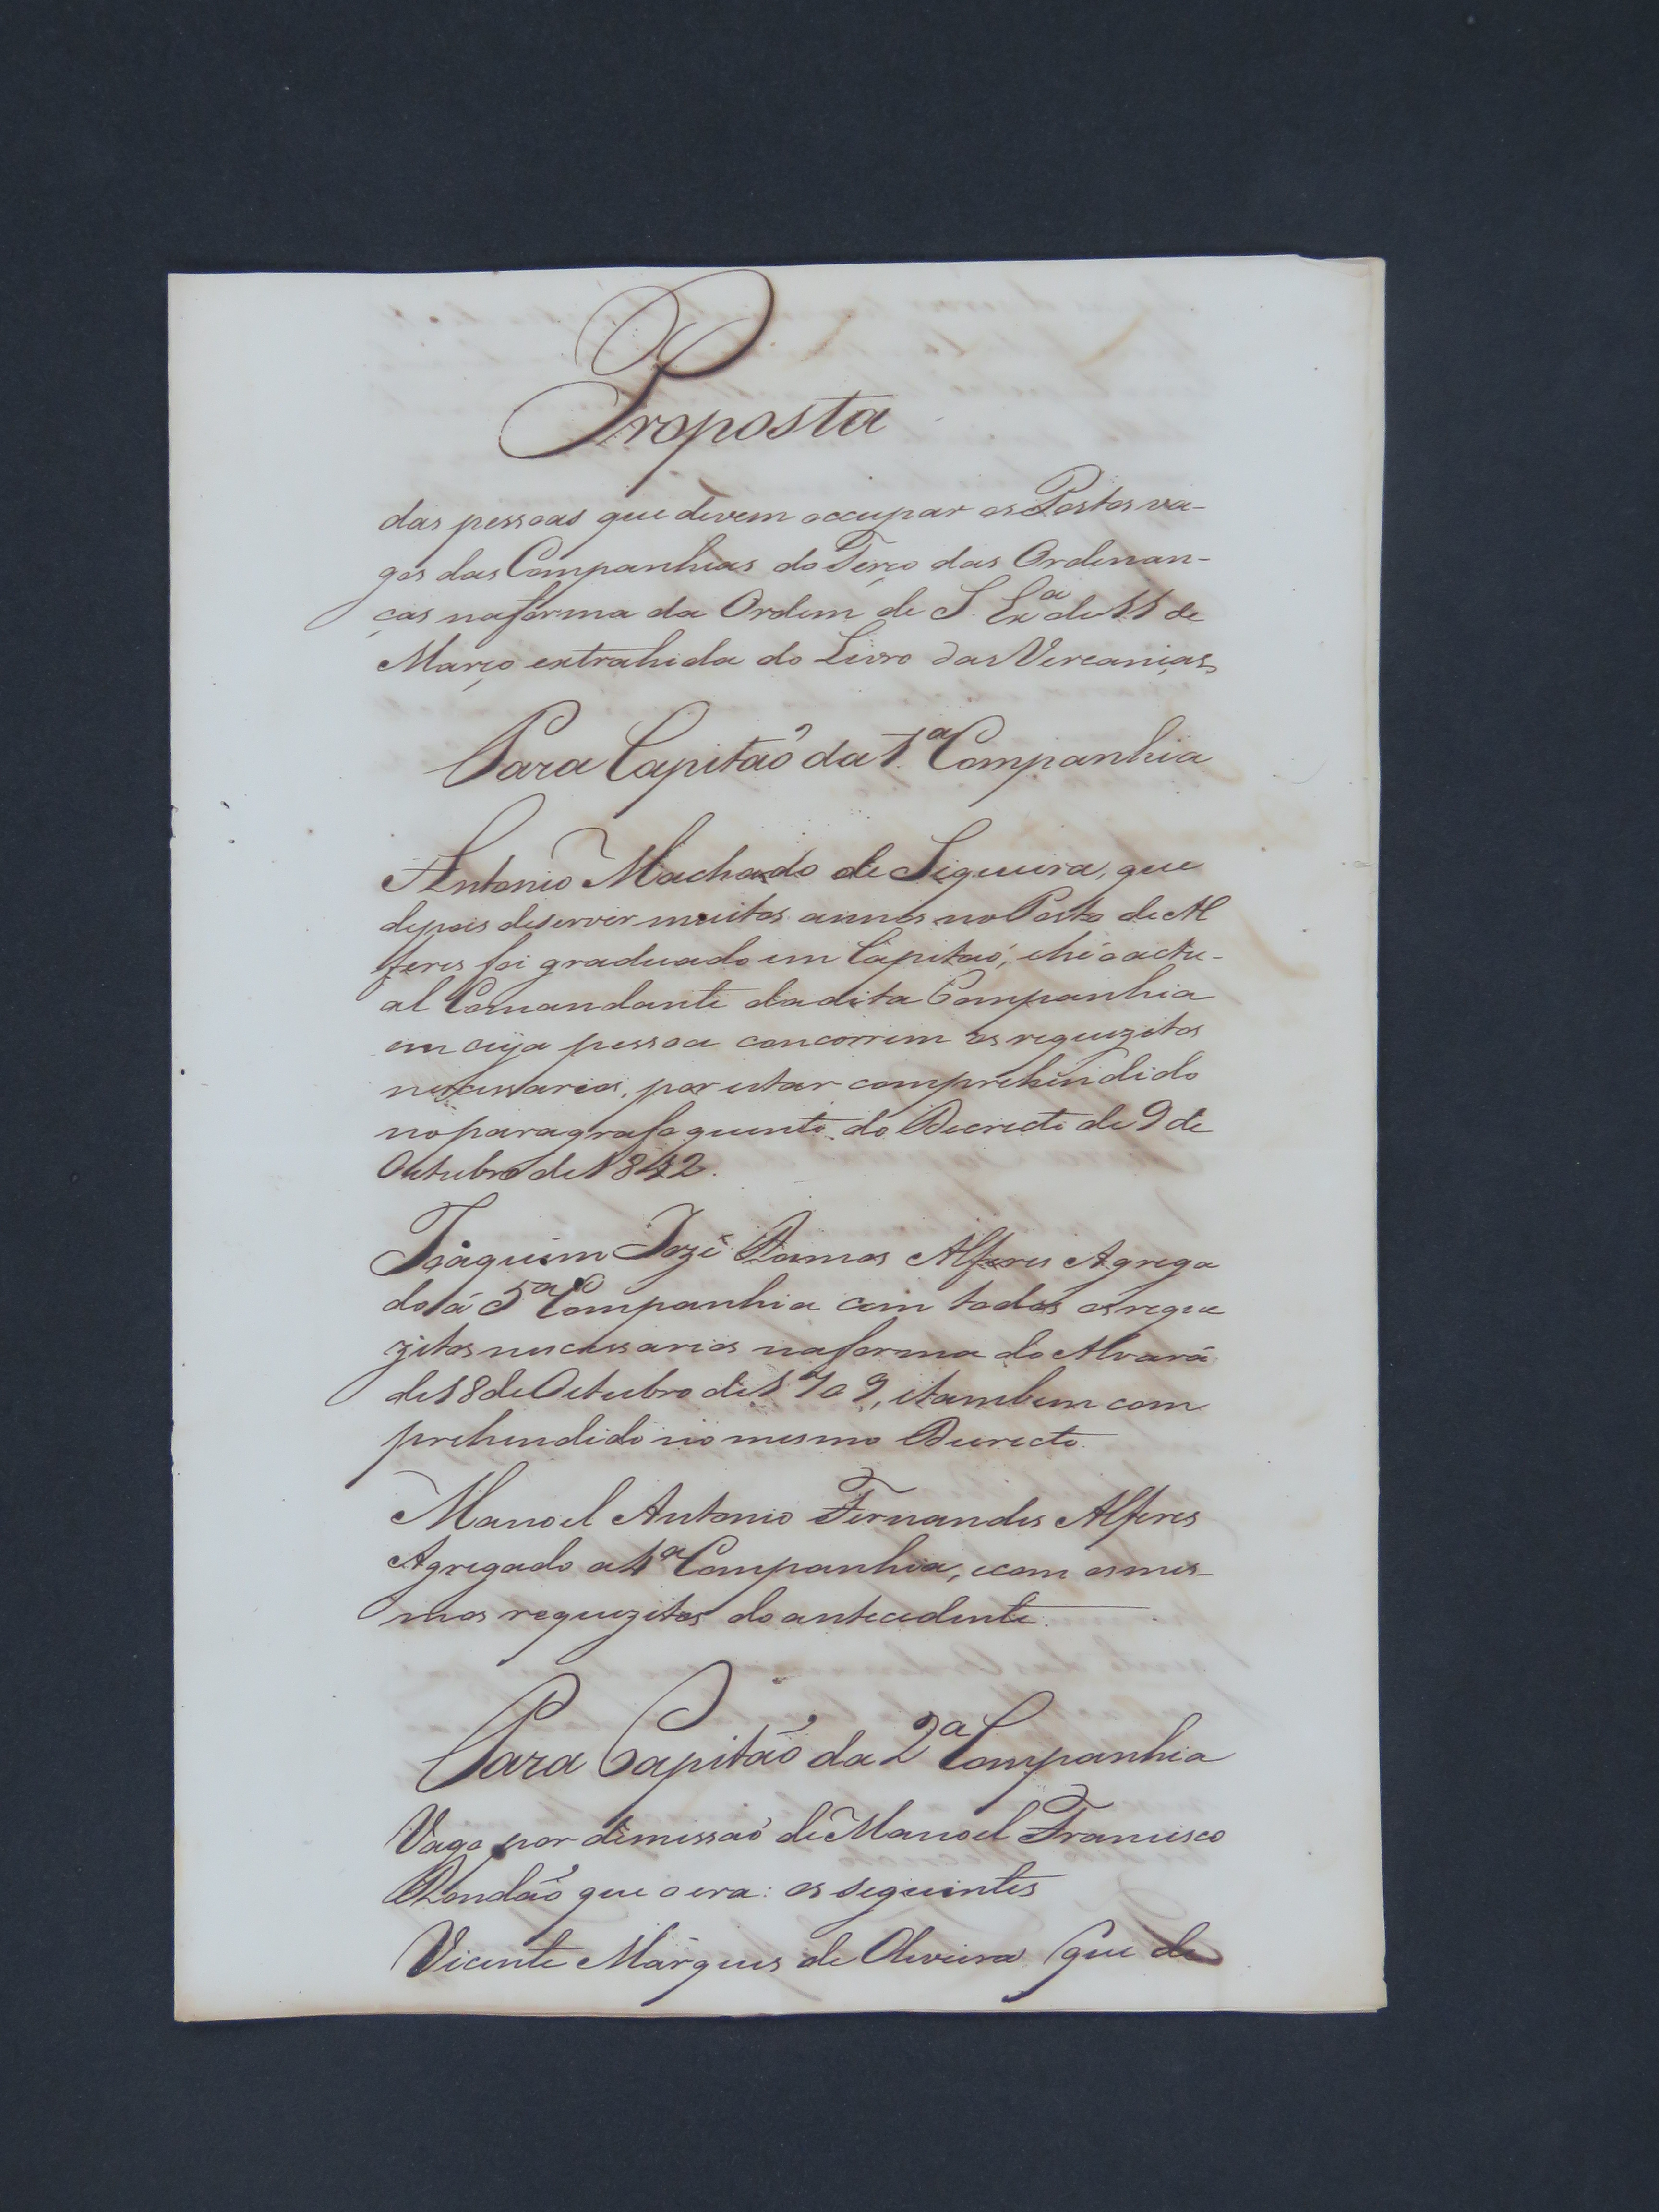 Proposta
das pessoas que devem occupar os Postos va-
gos das Companhias do Terço das Ordenan-
ças na forma da Ordem de S. Exª de 11 de
Março extrahida do Livro das Vereanças
Para Capitaõ da 1ª Companhia
Antonio Machado de Siqueira, que
depois de servir muitos annos no Posto de Al
feres foi graduado em Capitaõ, e hé o actu-
al Comandante da dita Companhia
em cuja pessoa concorrem os requizitos
necessarios, por estar comprehendido
no paragrafo quinto do Decreto de 9 de
Outubro de 1812.
Joaquim Jozé Ramos Alferes Agrega
do á 5ª Companhia com todos os reque
zitos necessarios na forma do Alvará
de 18 de Outubro de 1709, e tambem com
prehendido no mesmo Decreto.
Manoel Antonio Fernandes Alferes
Agregado a 1ª Companhia, e com os mes-
mos requezitos do antecedente.
Para Capitaõ da 2ª Companhia
Vago por demissaõ de Manoel Francisco
Rondaõ que o era: os seguintes
Vicente Marques de Oliveira que de